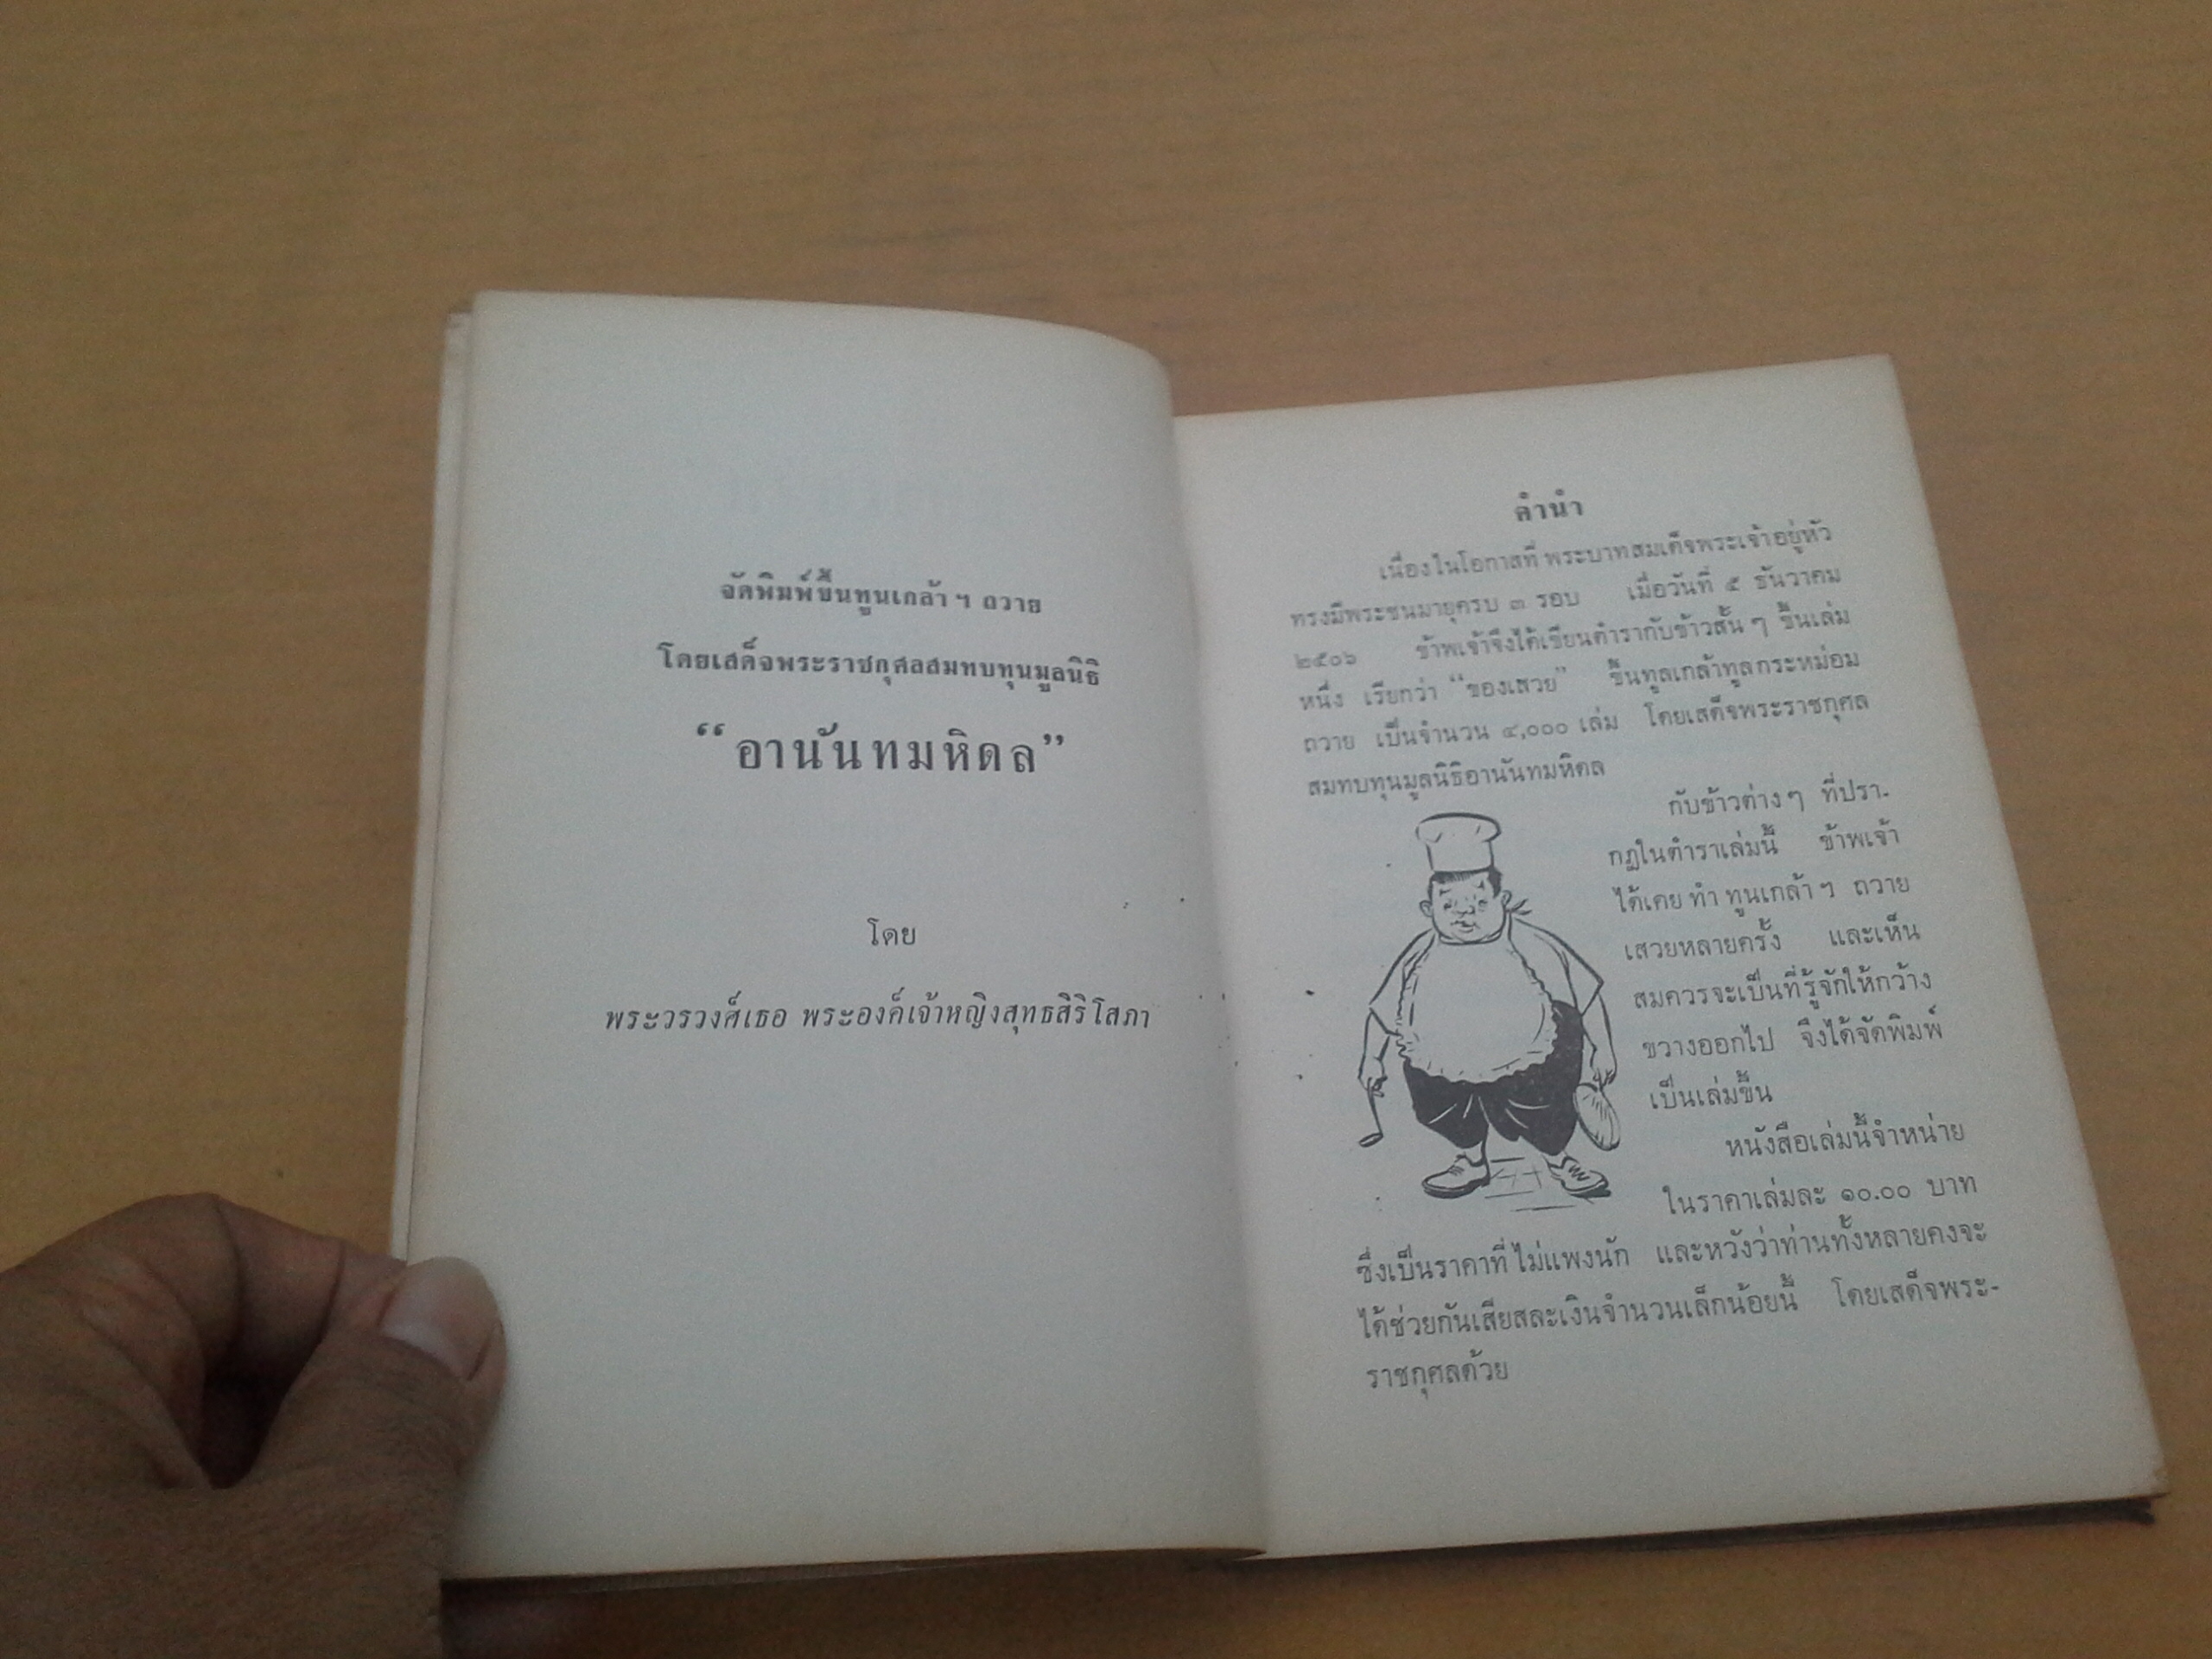 จัดพิมพ์ขึ้นทูนเกล้าฯ ถวาย
โดยเสด็จพระราชกุศลสมทบทุนมูลนิธิ
“อานันทมหิดล”
โดย
พระวรวงศ์เธอ พระองค์เจ้าหญิงสุทธสิริโสภา
คำนำ
เนื่องในโอกาสที่ พระบาทสมเด็จพระเจ้าอยู่หัว
ทรงมีพระชนมายุครบ ๓ รอบ เมื่อวันที่ ๕ ธันวาคม
๒๕๐๖ ข้าพเจ้าจึงได้เขียนตำรากับข้าวสั้น ๆ ขึ้นเล่ม
หนึ่ง เรียกว่า “ของเสวย” ขึ้นทูลเกล้าทูลกระหม่อม
ถวาย เป็นจำนวน ๔,๐๐๐ เล่ม โดยเสด็จพระราชกุศล
สมทบทุนมูลนิธิอานันทมหิดล
กับข้าวต่าง ๆ ที่ปรา-
กฏในตำราเล่มนี้ ข้าพเจ้า
ได้เคย ทำ ทูนเกล้า ฯ ถวาย
เสวยหลายครั้ง และเห็น
สมควรจะเป็นที่รู้จักให้กว้าง
ขวางออกไป จึงได้จัดพิมพ์
เป็นเล่มขึ้น
หนังสือเล่มนี้จำหน่าย
ในราคาเล่มละ ๑๐.๐๐ บาท
ซึ่งเป็นราคาที่ ไม่แพงนัก และหวังว่าท่านทั้งหลายคงจะ
ได้ช่วยกันเสียสละเงินจำนวนเล็กน้อยนี้ โดยเสด็จพระ-
ราชกุศลด้วย